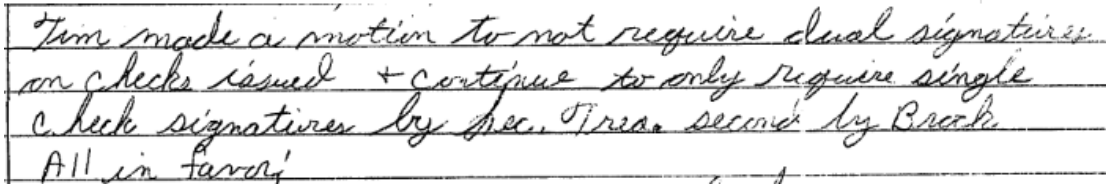 Tim made a motion to not require dual signatures
on checks issued + continue to only require single
check signatures by Sec. Trea. second by Brock
All in favor